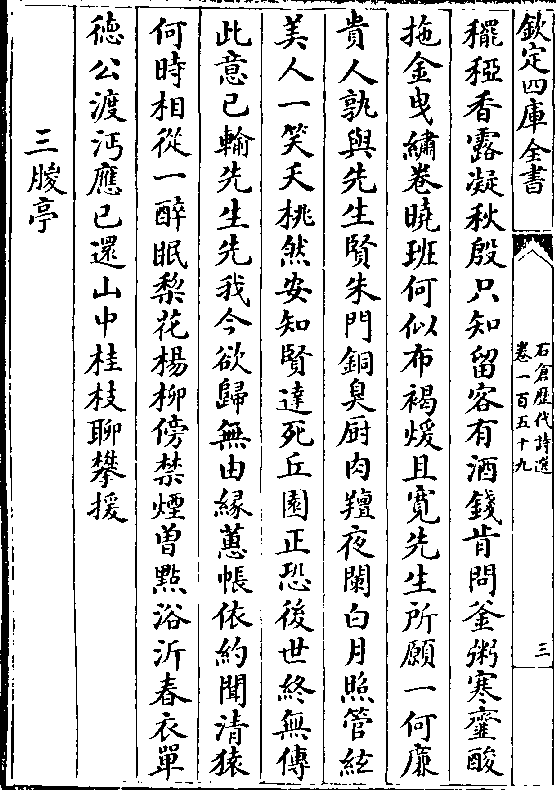 欽定四庫全書
石倉歷代詩選
卷一百五十九
三
䆉稏香露凝秋殷只知留客有酒錢肯問釜粥寒虀酸
拖金曳繡卷曉班何似布褐煖且寛先生所願一何廉
貴人孰與先生賢朱門銅臭厨肉羶夜闌白月照管絃
美人一笑夭桃然安知賢達死丘園正恐後世終無傳
此意已輸先生先我今欲歸無由緣蕙帳依約聞清猿
何時相從一醉眠梨花楊柳傍禁煙曾㸃浴沂春衣單
徳公渡沔應已還山中桂枝聊攀援
三朡亭